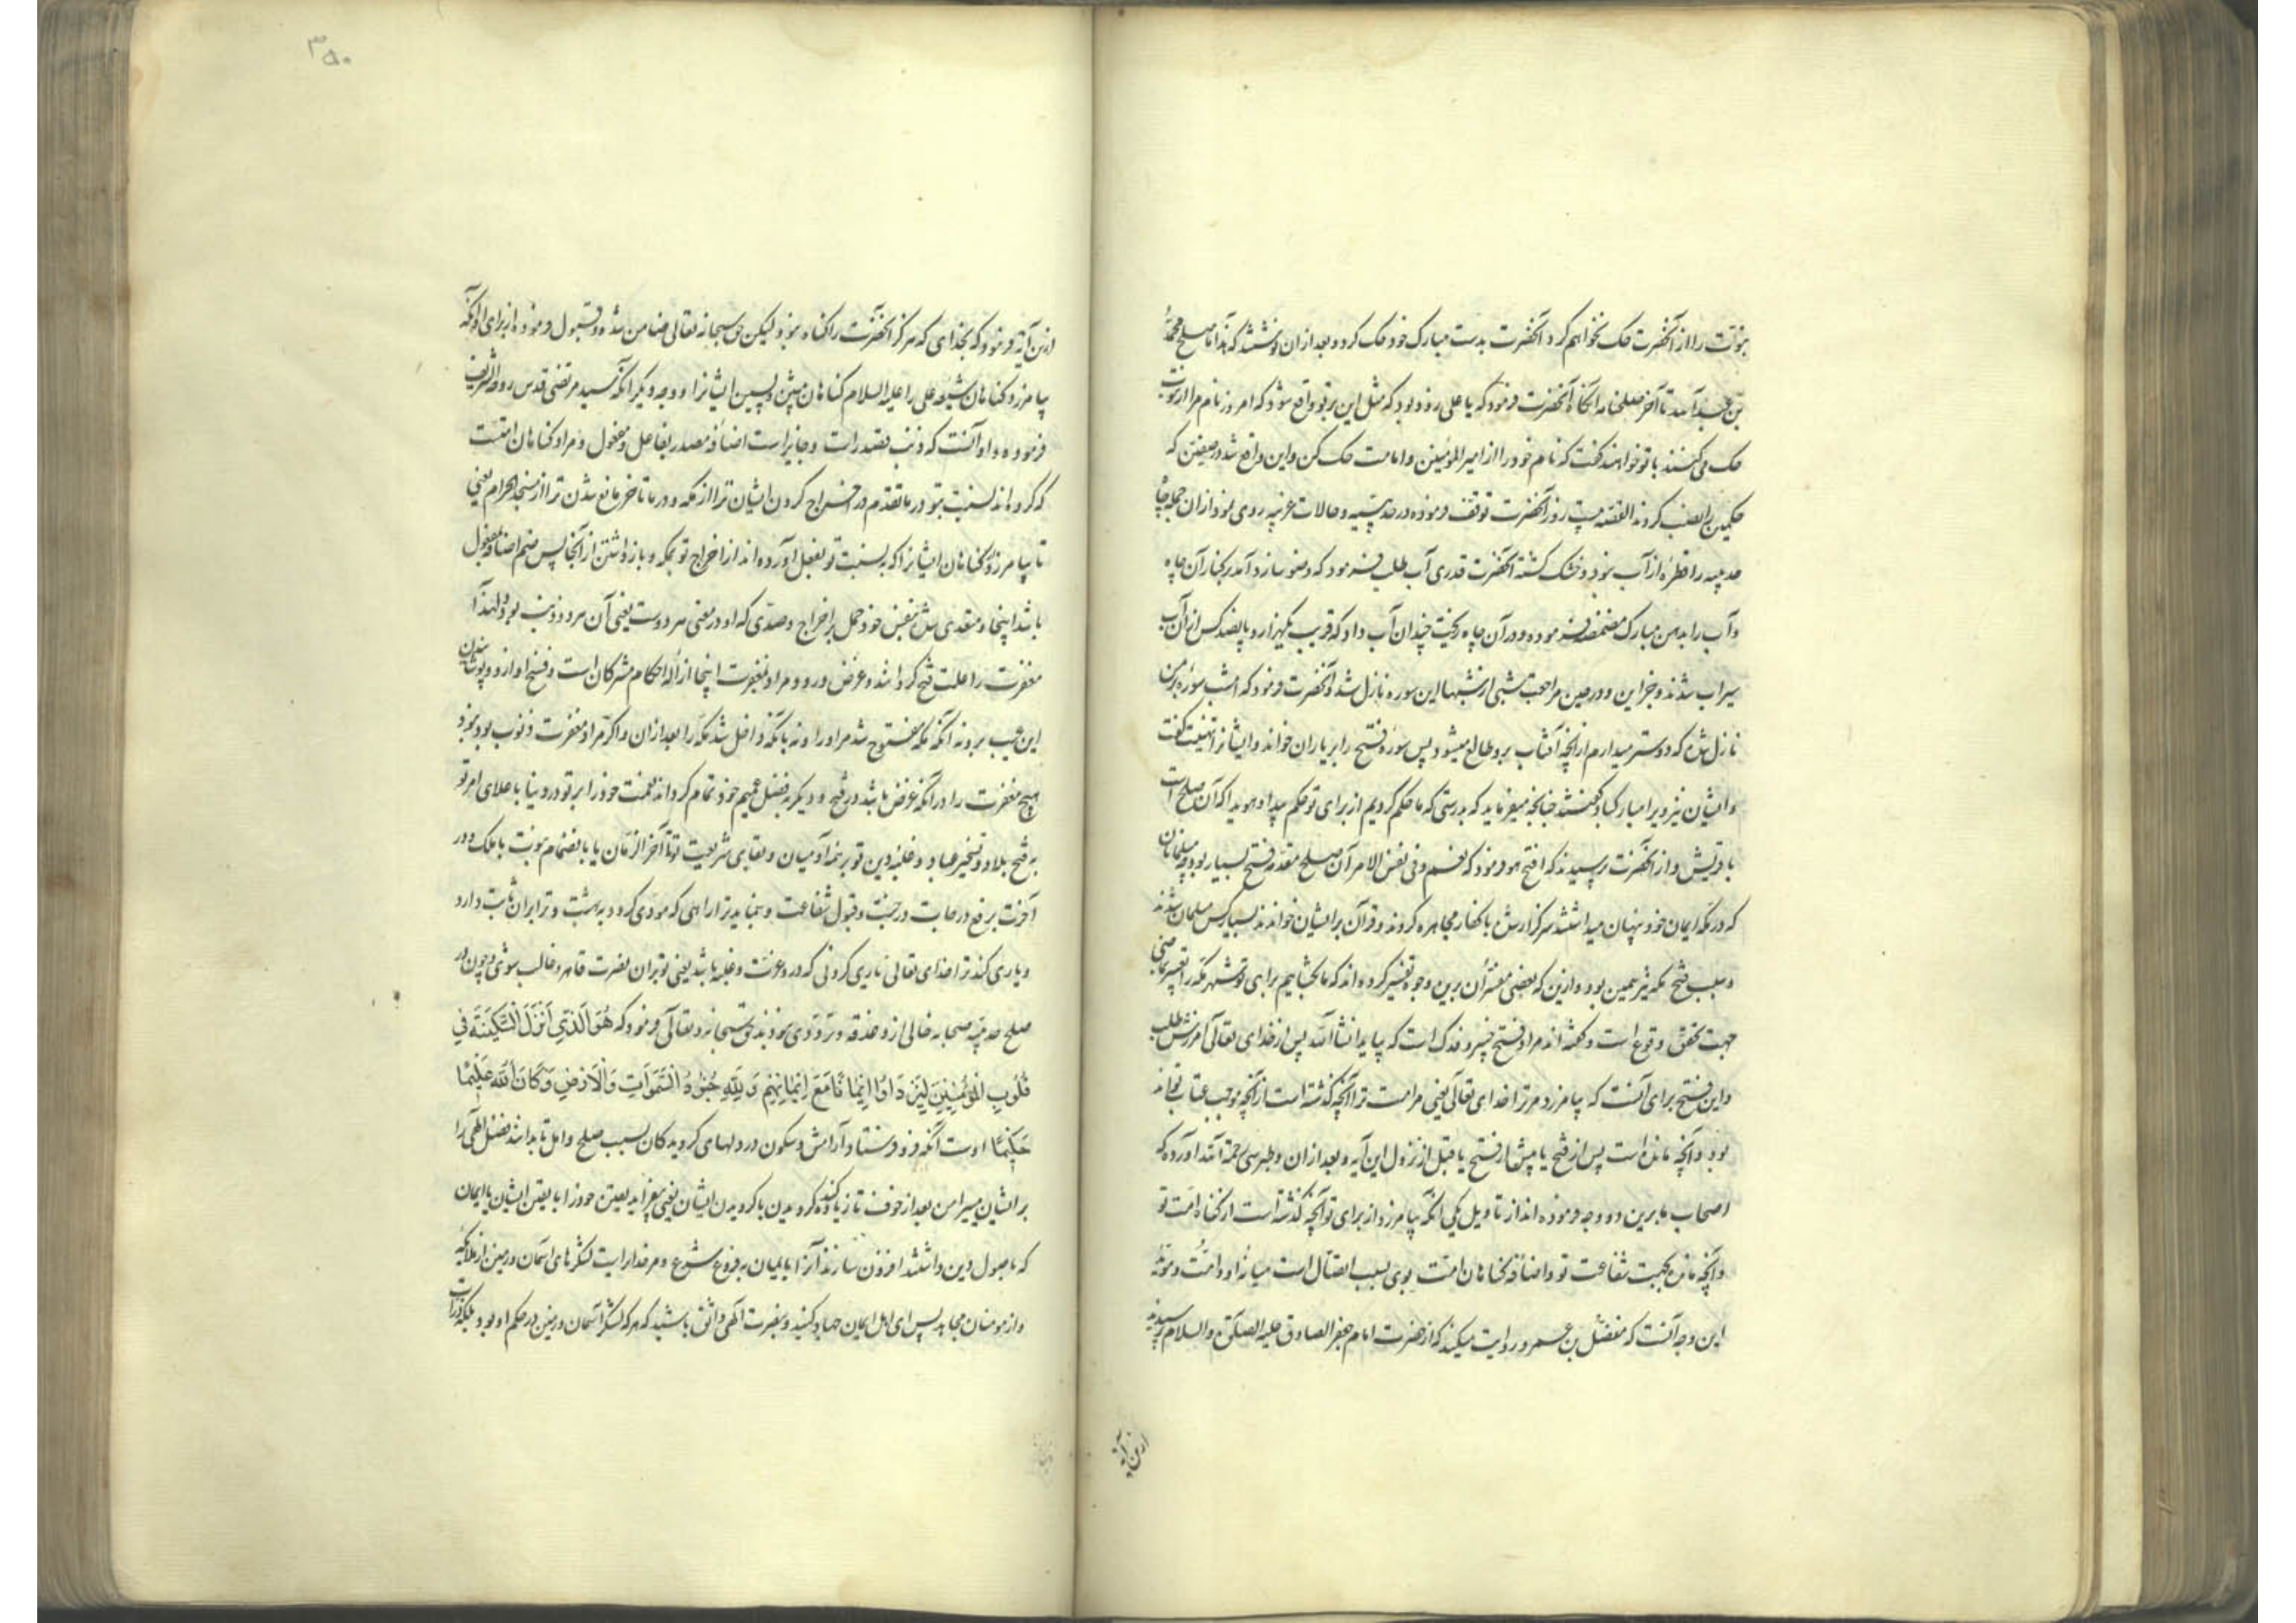 نبوت را از آنحضرت حک نخواهم کرد آنحضرت بدست مبارک خود حک کرد و بعد ازان نوشتند که هذا ما صلح محمد
بن عبد الله تا آخر صلحنامه آنگاه آنحضرت فرمود که یا علی روزی بود که مثل این بر تو واقع شود که امروز نام مرا از نبوت
حک می‌کنند با تو خواهند گفت که نام خود را از امیر المؤمنین و امامت حک کن و این واقع شد در صفین که
حکمین را نصب کردند القصه بیست روز آنحضرت توقف فرموده در حدیبیه و حالات غریبه روی نمود ازان جمله چاه
حدیبیه را قطره از آب نبود و خشک گشته آنحضرت قدری آب طلب فرمود که وضو سازد آمد بر کنار آن چاه
و آب را بدهن مبارک مضمضه فرموده و در آن چاه ریخت چندان آب داد که قریب بکهزار و پانصد کس از آن آب
سیراب شدند و جز این و در حین مراجعت شبی از شبها این سوره نازل شد و آنحضرت فرمود که امشب سوره بر من
نازل شده که دوستر میدارم از آنچه آفتاب برو طالع میشود پس سوره فتح را بر یاران خواند و ایشانرا تهنیت گفت
و ایشان نیز ویرا مبارکباد گفتند چنانچه میفرماید که بدرستی که ما حکم کردیم از برای تو حکم پیدا و هویدا که آن صلح است
با قریش و از آنحضرت پرسیدند که افتح هو فرمود که نعم و فی نفس الامر آن صلح مقدمه فتح بسیار بود چه مسلمانان
که در مکه ایمان خود پنهان میداشتند مرکز ارش با کفار مجاهره کردند و قرآن بر ایشان خواندند بسیار کس مسلمان شدند
و سبب فتح مکه نیز همین بود و ازین که بعضی مفسران برین وجه تفسیر کرده‌اند که ما بخشاییم برای تو شهر مکه را تعبیر بماضی
جهت تحقق وقوع است و گفته‌اند مراد فتح خیبر و فدک است که بیاید انشاء الله پس از خدای تعالی آمرزش طلب
و این فتح برای آنست که بیامرزد مر ترا خدای تعالی یعنی مرامت ترا آنچه گذشته است از آنچه موجب عتاب تواند
بود و آنچه مانده است پس از فتح یا پیش از فتح یا قبل از نزول این آیه و بعد ازان و طبرسی رحمة الله آورده که
اصحاب ما برین دو وجه فرموده‌اند از تاویل یکی آنکه بیامرزد از برای تو آنچه گذشته است از گناه امت تو
و آنچه مانده بجهت شفاعت تو و اضافه گناهان امت بوی بسبب اتصال است میانه او و امت و موید
این وجه آنست که مفضل بن عمر روایت میکند که از حضرت امام جعفر الصادق علیه الصلوة والسلام پرسیدند
ازین آیه
۳۵۰
ازین آیه فرمود که بخدای که هرگز آنحضرت را گناه نبود لیکن حق سبحانه تعالی ضامن شده و قبول فرموده از برای او آنکه
بیامرزد گناهان شیعه علی را علیه السلام گناهان پیشین و پسین ایشانرا و وجه دیگر آنکه سید مرتضی قدس روحه الشریف
فرموده و او آنست که ذنب مصدر است و جایز است اضافه مصدر بفاعل و مفعول و مراد گناهان امتست
که کرده‌اند نسبت بتو در ما تقدم در اخراج کردن ایشان ترا از مکه و در ما تاخر مانع شدن ترا از مسجد الحرام یعنی
تا بیامرزد گناهان ایشانرا که بنسبت تو بفعل آورده‌اند از اخراج تو بمکه و باز داشتن از آنجا پس ضم اضافه بمفعول
باشد اینجا و متعدی بنفس خود حمل بر اخراج و صدی که او در معنی هر دوست یعنی آن هر دو ذنب بود و لهذا
مغفرت را علت فتح گرداند و غرض درو و مراد بمغفرت اینجا ازاله احکام مشرکان است و فسخ او ازو و پوشانیدن
این عیب برو نه آنکه مکه مفتوح شد مر او را و نه بآنکه داخل شد مکه را بعد ازان و اگر مراد مغفرت ذنوب بود نبود
هیچ مغفرت را در آنکه غرض باشد در فتح و دیگر بفضل عمیم خود تمام گرداند نعمت خود را بر تو در دنیا باعلای امر تو
به فتح بلاد و تسخیر عباد و غلبه دین تو بر همه آدمیان و بقای شریعت تو تا آخر الزمان یا بانضمام نبوت با ملک و در
آخرت برفع درجات در جنت و قبول شفاعت و بنماید ترا راهی که مودی گردد به بهشت و ترا بران ثابت دارد
و یاری کند ترا خدای تعالی یاری کردنی که در و عزت و غلبه باشد یعنی تو بران نصرت قاهر و غالب شوی و چون در
صلح حدیبیه صحابه خالی از دغدغه و ترددی نبودند حق سبحانه و تعالی فرمود که هُوَ الَّذِي أَنْزَلَ السَّكِينَةَ فِي
قُلُوبِ الْمُؤْمِنِينَ لِيَزْدَادُوا إِيمَانًا مَعَ إِيمَانِهِمْ وَلِلَّهِ جُنُودُ السَّمَوَاتِ وَالْأَرْضِ وَكَانَ اللَّهُ عَلِيمًا
حَكِيمًا اوست آنکه فرو فرستاد آرامش و سکون در دلهای گرویدگان بسبب صلح و امن تا بدانند فضل الهی را
بر ایشان بمیسر امن بعد از خوف تا زیاده کند گرویدن با گرویدن ایشان یعنی بیفزاید یقین خود را با یقین ایشان یا ایمان
که باصول دین داشتند افزون سازند آنرا با ایمان به فروع شرع و مر خدایراست لشکرهای آسمان و زمین از ملائکه
و از مومنان مجاهد پس ای اهل ایمان جهاد کنید و بنصرت الهی واثق باشید که هر که لشکر آسمان و زمین در حکم او بود بلکه ذرات